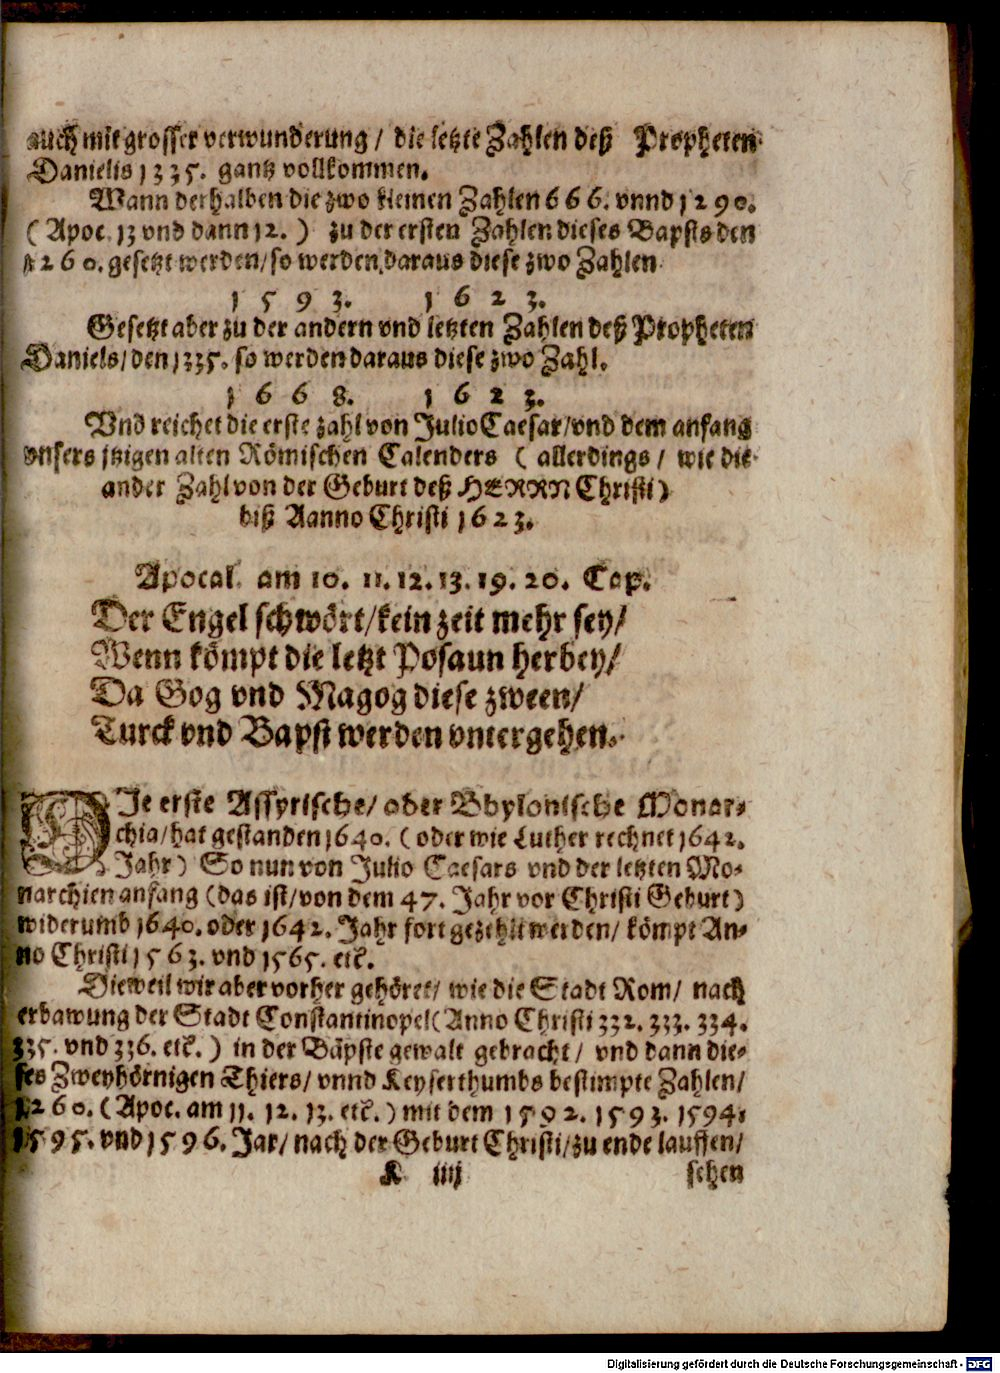 auch mit grosser verwunderung / die letzte Zahlen deß Propheten
Danielis 1335. gantz vollkommen.
Wann derhalben die zwo kleinen Zahlen 666. vnnd 1290.
( Apoc. 13 vnd dann 12. ) zu der ersten Zahlen dieses Bapsts den
1260. gesetzt werden / so werden daraus diese zwo Zahlen
1593. 1623.
Gesetzt aber zu der andern vnd letzten Zahlen deß Propheten
Daniels / den 1335. so werden daraus diese zwo Zahl.
1668. 1623.
Vnd reichet die erste zahl von Julio Caesar / vnd dem anfang
vnsers jtzigen alten Römischen Calenders ( allerdings / wie die
ander Zahl von der Geburt deß HERRN Christi )
biß Aanno Christi 1623.
Apocal. am 10. 11. 12. 13. 19. 20. Cap.
Der Engel schwört / kein zeit mehr sey /
Wenn kömpt die letzt Posaun herbey /
Da Gog vnd Magog diese zween /
Turck vnd Bapst werden vntergehen.
DIe erste Assyrische / oder Bbylonische Monar-
chia / hat gestanden 1640. ( oder wie Luther rechnet 1642.
Jahr ) So nun von Julio Caesars vnd der letzten Mo-
narchien anfang (das ist / von dem 47. Jahr vor Christi Geburt)
widerumb 1640. oder 1642. Jahr fort gezehlt werden / kömpt An-
no Christi 1563. vnd 1565. etc.
Dieweil wir aber vorher gehöret / wie die Stadt Rom / nach
erbawung der Stadt Constantinopel (Anno Christi 332. 333. 334.
335. vnd 336. etc. ) in der Bäpste gewalt gebracht / vnd dann die-
ses Zweyhörnigen Thiers / vnnd Keyserthumbs bestimpte Zahlen /
1260. ( Apoc. am 11. 12. 13. etc. ) mit dem 1592. 1593. 1594.
1595. vnd 1596. Jar / nach der Geburt Christi / zu ende lauffen /
K iiij sehen
Digitalisierung gefördert durch die Deutsche Forschungsgemeinschaft - DFG